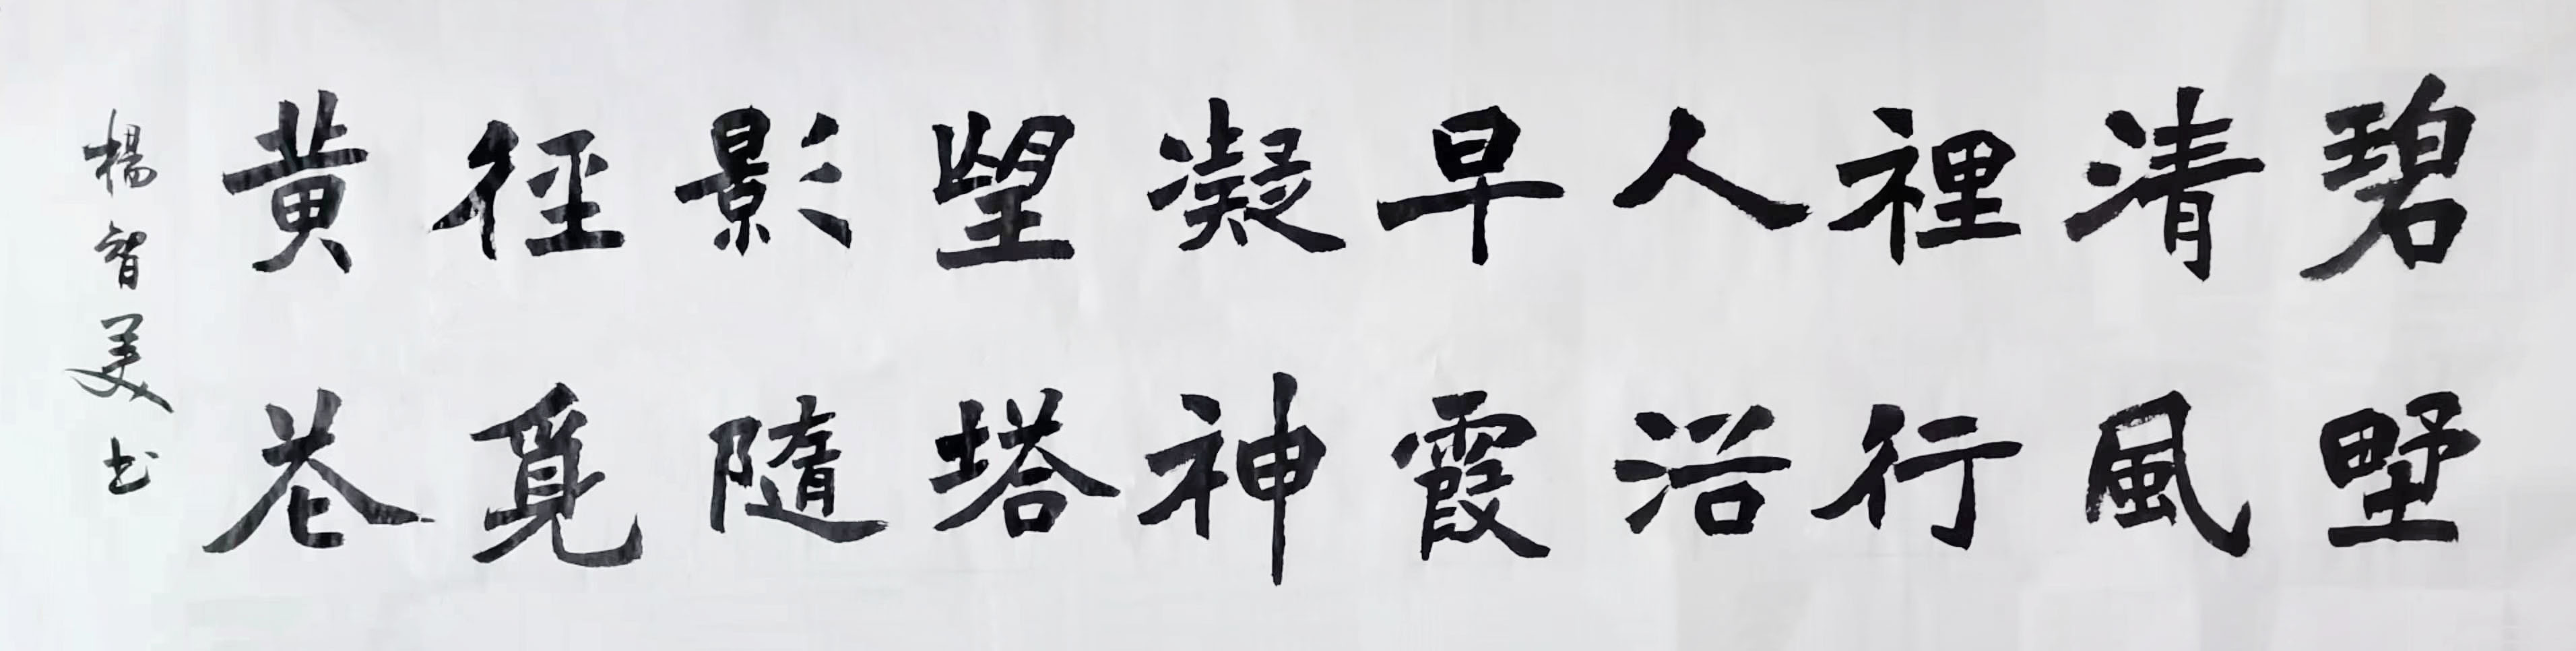 碧野
清風
裡行
人沿
早霞
凝神
望塔
影隨
徑覓
黃巷
楊智美书